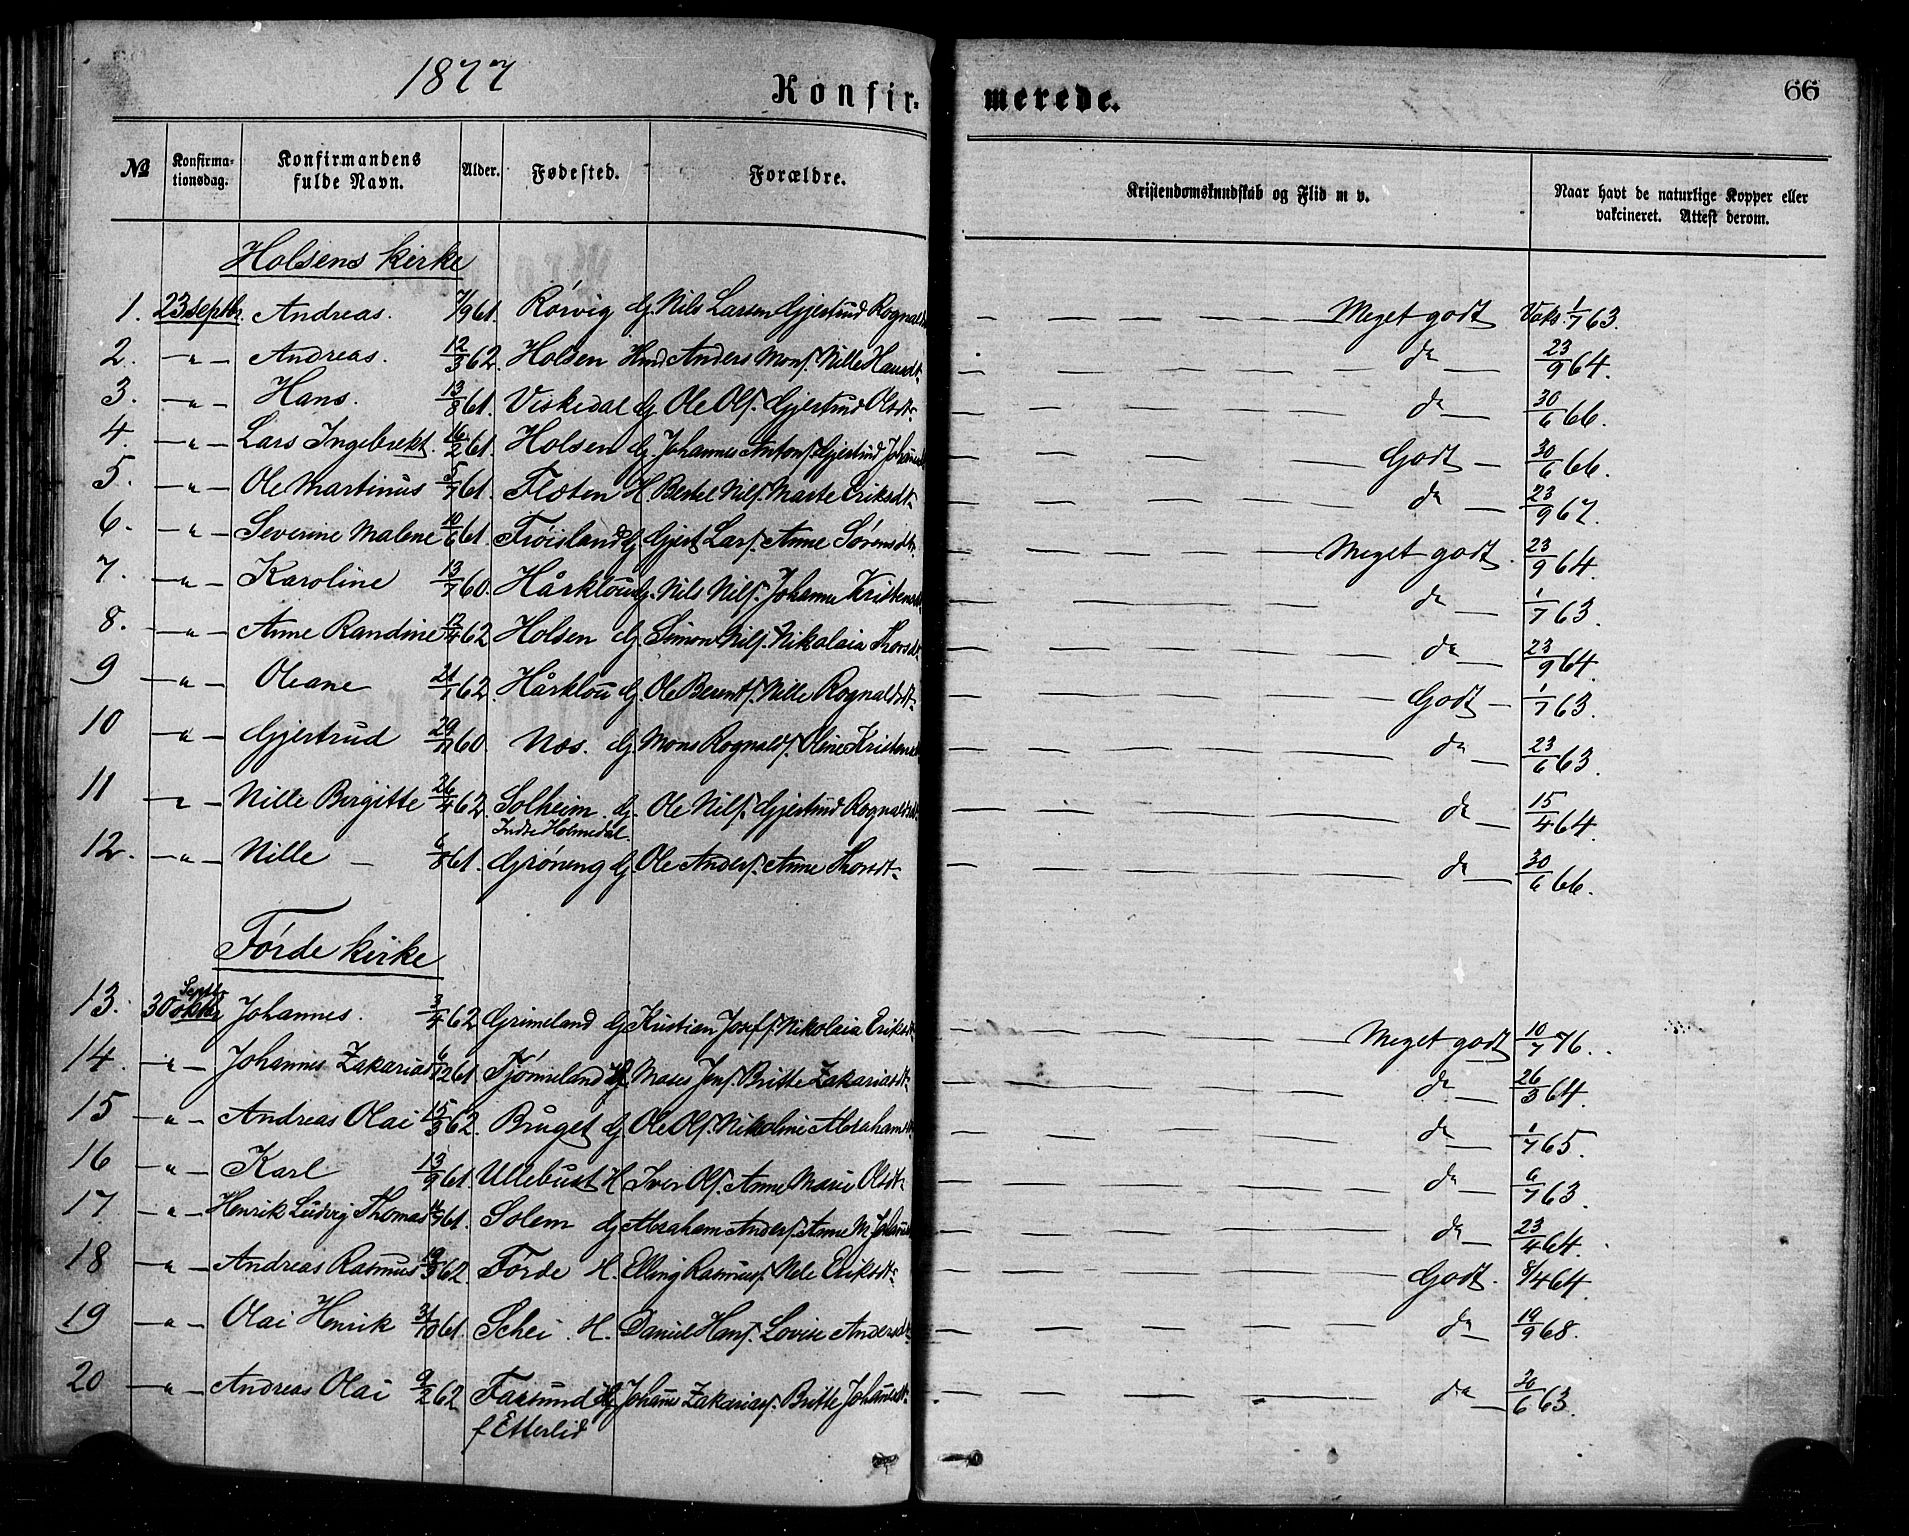 1877
Konfir- merede. 66
№ Konfirma-tionsdag. Konfirmandens fulde Navn. Alder. Fødested. Forældre. Kristendomskundskab og Flid m v. Naar havt de naturlige Kopper eller vakcineret. Attest derom.
Holsens kirke
1. 23 Septbr. Andreas. 7/9 61. Rörvig G. Nils Larsen Gjertrud Rognald — — — — — Meget godt Vaks. 1/7 63.
2. — " — Andreas. 12/3 62. Holsen Hmd. Anders Mons. Nille Hansdt. — — — — — do — 23/9 64.
3. — " — Hans. 13/8 61. Viskedal G. Ole Ols. Gjertrud Olsdt. — — — — — do — 30/6 66.
4. — " — Lars Ingebrekt. 16/2 61. Holsen G. Johannes Antons. Gjertrud — — — — — Godt — 30/6 66.
5. — " — Ole Martinus 5/7 61. Floten H. Bertel Nils. Marte Eriksdt. — — — — — do — 23/9 67.
6. — " — Severine Malene 10/6 61. Fröisland G. Gjert Lars. Anne Sørensdtr. — — — — — Meget godt. 23/9 64.
7. — " — Karoline 13/7 60. Hårklou G. Nils Nils. Johanne Kristensdt — — — — do — 1/7 63.
8. — " — Anne Randine 62. Holsen G. Simon Nils. Nikolaia Thorsdt. — — — — — do — 23/9 64.
9 — " — Oleane 21/1 62. Hårklou G. Ole Berents. Nille Rognaldsdt. — — — — — Godt — 1/7 63.
10 — " — Gjertrud 29/ 60. Næs. G. Mons Rognalds. Oline Kristens — — — — — do — 23/6 63.
11 — " — Nille Birgitte 26/4 62. Solheim G. Ole Nils. Gjertrud Rognaldsdt. — — — — — do — 15/4 64.
Indre Holmedal
12. — " — Nille — 6/8 61. Gröneng G. Ole Anders. Anne Thorsdt. — — — — — do — 30/6 66.
Förde kirke
Septbr.
13. 30 oktbr Johannes. 3/4 62. Grimeland G. Kristian Josefs. Nikolaia Eriksdt. — — — — — Meget godt 10/7 76.
14. — " — Johannes Zakarias 6/12 61. Tjönneland G Moses Jens. Britte Zakariasdt. — — — — — do — 26/3 64.
15 — " — Andreas Olai 15/3 62. Bruget G. Ole Ols. Nikoline Abrahamsdt. — — — — — do — 1/7 65.
16 — " — Karl 13/9 61. Ullebust H Iver Ols. Anne Marie Olsdt. — — — — — do — 6/7 63.
17 — " — Henrik Ludvig Thomas 61. Solem G Abraham Anders. Anne M. — — — — — do — 23/4 64.
18 — " — Andreas Rasmus 62. Förde H. Elling Rasmus. Nele Eriksdt. — — — — — Godt. 8/4 64.
19 — " — Olai Henrik 31/10 61. Schei H. Daniel Hans. Lovise Andersdt. — — — — — do — 19/9 68.
20 — " — Andreas Olai 9/2 62. Farsund Johanes Zakarias. Britte Johanesdt. — — — — — do — 6 63.
f Etterlid